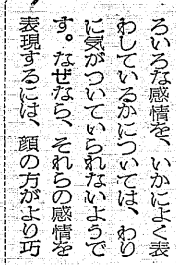 ろいろな感情を、いかによく表
わしているかについては、わり
に気がついていられないようで
す。なぜなら、それらの感情を
表現するには、顔の方がより巧